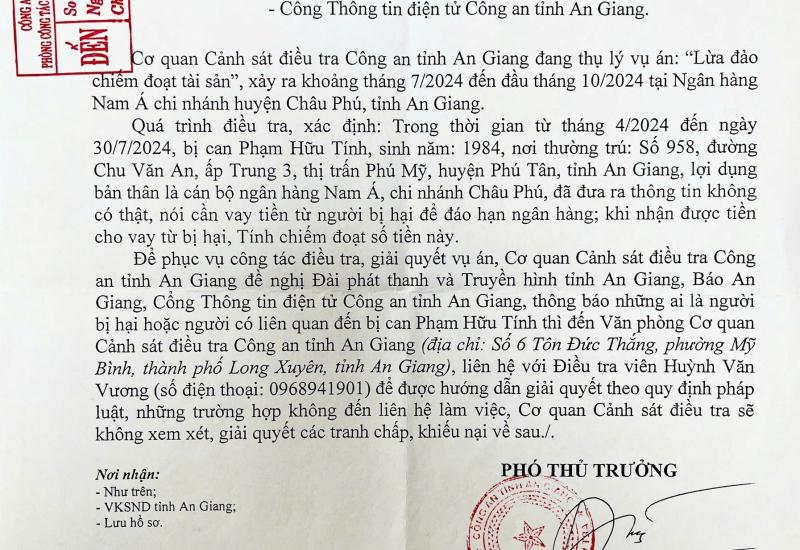 - Công Thông tin điện tử Công an tỉnh An Giang.
CÔNG A
PHÒNG CÔNG TÁC
ĐẾN
Số
Ng
Cơ quan Cảnh sát điều tra Công an tỉnh An Giang đang thụ lý vụ án: “Lừa đảo
chiếm đoạt tài sản”, xảy ra khoảng tháng 7/2024 đến đầu tháng 10/2024 tại Ngân hàng
Nam Á chi nhánh huyện Châu Phú, tỉnh An Giang.
Quá trình điều tra, xác định: Trong thời gian từ tháng 4/2024 đến ngày
30/7/2024, bị can Phạm Hữu Tính, sinh năm: 1984, nơi thường trú: Số 958, đường
Chu Văn An, ấp Trung 3, thị trấn Phú Mỹ, huyện Phú Tân, tỉnh An Giang, lợi dụng
bản thân là cán bộ ngân hàng Nam Á, chi nhánh Châu Phú, đã đưa ra thông tin không
có thật, nói cần vay tiền từ người bị hại để đáo hạn ngân hàng; khi nhận được tiền
cho vay từ bị hại, Tính chiếm đoạt số tiền này.
Để phục vụ công tác điều tra, giải quyết vụ án, Cơ quan Cảnh sát điều tra Công
an tỉnh An Giang đề nghị Đài phát thanh và Truyền hình tỉnh An Giang, Báo An
Giang, Cổng Thông tin điện tử Công an tỉnh An Giang, thông báo những ai là người
bị hại hoặc người có liên quan đến bị can Phạm Hữu Tính thì đến Văn phòng Cơ quan
Cảnh sát điều tra Công an tỉnh An Giang (địa chỉ: Số 6 Tôn Đức Thắng, phường Mỹ
Bình, thành phố Long Xuyên, tỉnh An Giang), liên hệ với Điều tra viên Huỳnh Văn
Vương (số điện thoại: 0968941901) để được hướng dẫn giải quyết theo quy định pháp
luật, những trường hợp không đến liên hệ làm việc, Cơ quan Cảnh sát điều tra sẽ
không xem xét, giải quyết các tranh chấp, khiếu nại về sau./.
Nơi nhận:
- Như trên;
- VKSND tỉnh An Giang;
- Lưu hồ sơ.
PHÓ THỦ TRƯỞNG
CÔNG AN TỈNH AN GIANG